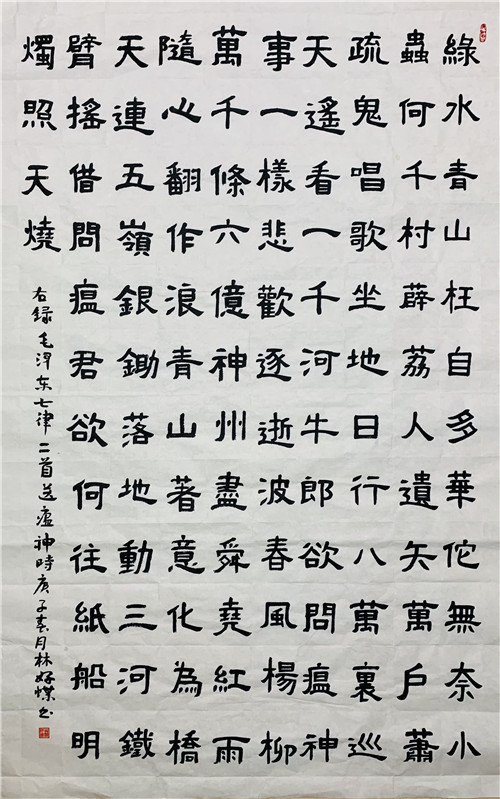 綠水青山枉自多華佗無奈小
蟲何千村薜荔人遺矢萬戶蕭
疏鬼唱歌坐地日行八萬裏巡
天遙看一千河牛郎欲問瘟神
事一樣悲歡逐逝波春風楊柳
萬千條六億神州盡舜堯紅雨
隨心翻作浪青山著意化為橋
天連五嶺銀鋤落地動三河鐵
臂搖借問瘟君欲何往紙船明
燭照天燒
右録毛泽东七律二首送瘟神時庚子春月林好蝶书